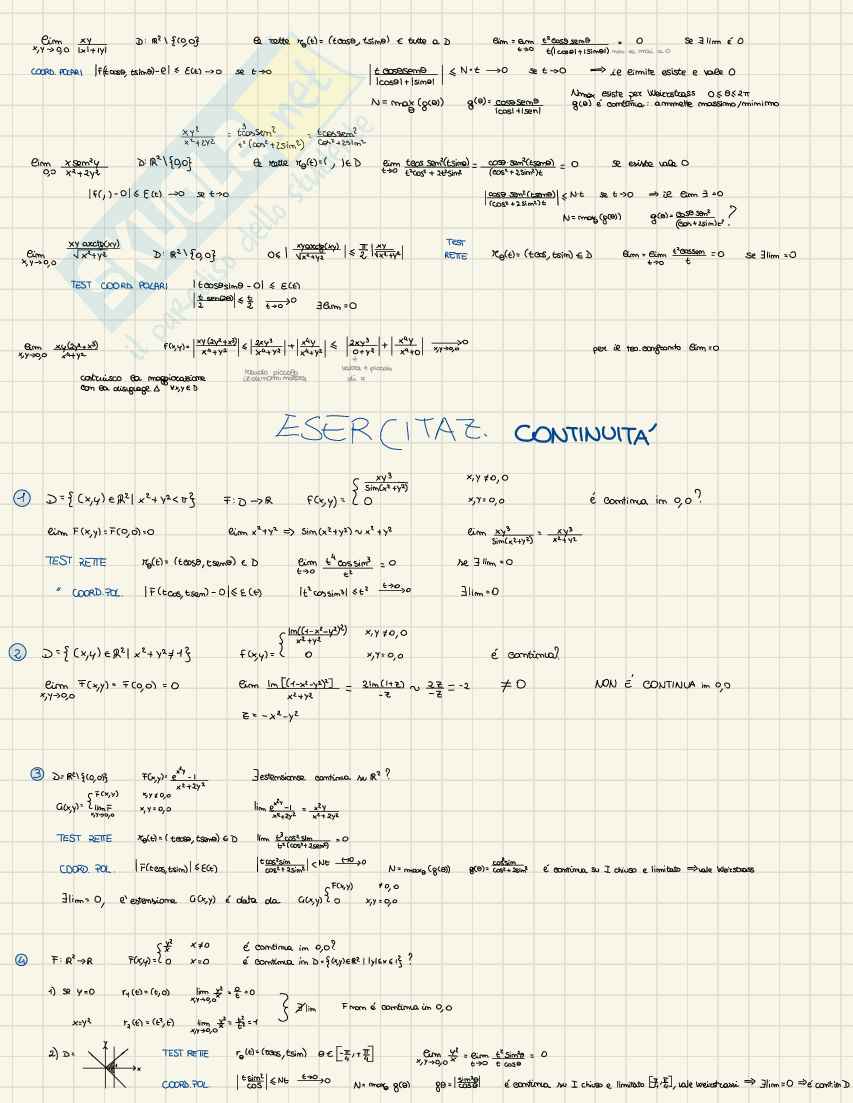 lim x,y→0,0 xy/(|x|+|y|) D: ℝ²\{(0,0)} le rette r_θ(t)=(tcosθ, tsinθ) ∈ tutte a D lim = lim t→0 t²cosθ senθ/(t(|cosθ|+|sinθ|)) = 0 se ∃ lim é 0
COORD. POLARI |F(tcosθ, tsinθ)-e| ≤ E(t) →0 se t→0 |t cosθ senθ/(|cosθ|+|sinθ|)| ≤ N·t →0 se t→0 ⟹ il limite esiste e vale 0
N = max_θ (g(θ)) g(θ) = cosθ senθ/(|cos|+|sen|) Nmax esiste per Weierstrass 0≤θ≤2π
g(θ) é continua: ammette massimo/minimo
xy²/(x²+2y²) = t³cossen²/(t²(cos²+2sin²)) = tcossen²/(cos²+2sin²)
lim 0,0 x sen²y/(x²+2y²) D: ℝ²\{0,0} le rette r_θ(t)=( , )∈D lim t→0 tcos sen²(tsinθ)/(t²cos²+2t²sin²) = cosθ sen²(tsenθ)/((cos²+2sin²)t) = 0 se esiste vale 0
|f(,)-0| ≤ E(t) →0 se t→0 |cosθ sen²(tsenθ)/((cos²+2sin²)t)| ≤ N·t se t→0 ⟹ il lim ∃ =0
N = max_θ (g(θ)) g(θ) = cosθ sen²/((cos+2sin)t² ?
lim x,y→0,0 xy arctg(xy)/√(x²+y²) D: ℝ²\{0,0} 0≤ |xy arctg(xy)/√(x²+y²)| ≤ π/2 |xy/√(x²+y²)| TEST RETTE r_θ(t)=(tcos, tsin) ∈ D lim = lim t→0 t²cossen/t = 0 se ∃ lim = 0
TEST COORD POLARI |tcosθsinθ-0| ≤ E(t)
|t/2 sen(2θ)| ≤ t/2 t→0 →0 ∃ lim = 0
lim x,y→0,0 xy(2y²+x³)/(x⁴+y²) f(x,y) = |xy(2y²+x³)/(x⁴+y²)| ≤ |2xy³/(x⁴+y²)| + |x⁴y/(x⁴+y²)| ≤ |2xy³/(0+y²)| + |x⁴y/(x⁴+0)| x,y→0,0 →0 per il teo. confronto lim = 0
costruisco la maggiorazione
con la disuguagl Δ ∀x,y∈D
ESERCITAZ. CONTINUITA'
1 D={(x,y)∈ℝ²| x²+y²<π} F: D→ℝ f(x,y) = { xy³/sin(x²+y²) x,y≠0,0
0 x,y=0,0 é continua in 0,0?
lim F(x,y)=F(0,0)=0 lim x²+y² ⇒ sin(x²+y²) ~ x²+y² lim xy³/sin(x²+y²) = xy³/(x²+y²)
TEST RETTE r_θ(t)=(tcosθ, tsenθ) ∈ D lim t→0 t⁴cossin³/t² = 0 se ∃ lim = 0
" COORD. POL. |F(tcos, tsen)-0| ≤ E(t) |t²cossin³| ≤ t² t→0 →0 ∃ lim = 0
2 D={(x,y)∈ℝ²| x²+y²≠1} f(x,y) = { ln((1-x²-y²)²)/(x²+y²) x,y≠0,0
0 x,y=0,0 é continua?
lim x,y→0,0 F(x,y)=F(0,0)=0 lim ln[(1-x²-y²)²]/(x²+y²) = 2ln(1+z)/-z ~ 2z/-z = -2 ≠ 0 NON É CONTINUA in 0,0
z = -x²-y²
3 D=ℝ²\{(0,0)} F(x,y) = (e^(x²y)-1)/(x²+2y²) ∃ estensione continua su ℝ²?
G(x,y) = { F(x,y) x,y≠0,0
lim F x,y→0,0 x,y=0,0 lim (e^(x²y)-1)/(x²+2y²) = x²y/(x²+2y²)
TEST RETTE r_θ(t)=(tcosθ, tsenθ) ∈ D lim t³cos²sin/(t²(cos²+2sen²)) = 0
COORD. POL. |F(tcos, tsin)| ≤ E(t) |tcos²sin/(cos²+2sin²)| < Nt t→0 →0 N = max_θ (g(θ)) g(θ) = cos²sin/(cos²+2sin²) é continua su I chiuso e limitato ⇒ vale Weierstrass
∃ lim = 0, l'estensione G(x,y) é data da G(x,y) { F(x,y) ≠0,0
0 x,y=0,0
4 F: ℝ²→ℝ F(x,y) = { y²/x x≠0 é continua in 0,0?
0 x=0 é continua in D={(x,y)∈ℝ²| |y|≤x≤1}?
1) se y=0 r₁(t)=(t,0) lim x,y→0,0 y²/x = 0/t = 0
∄ lim F non é continua in 0,0
x=y² r₂(t)=(t²,t) lim x,y→0,0 y²/x = t²/t² = 1
2) D= y x TEST RETTE r_θ(t)=(tcos, tsin) θ∈[-π/4, +π/4] lim x,y→0,0 y²/x = lim t→0 t²sin²θ/(t cosθ) = 0
COORD. POL. |tsin²/cos| ≤ Nt t→0 →0 N = max_θ g(θ) gθ = |sin²θ/cosθ| é continua su I chiuso e limitato, vale weierstrass ⟹ ∃ lim = 0 ⟹ é contin D
SKUOLA.net
il paradiso dello studente